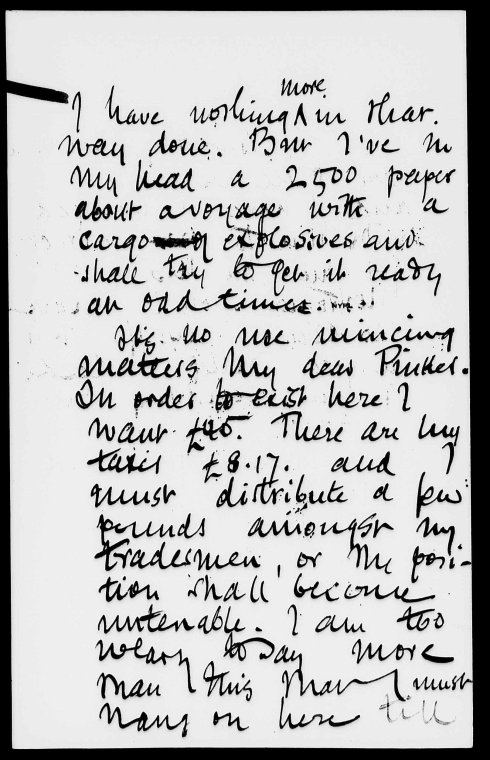 I have nothing more in that
way done. But I've in
my head a 2500 paper
about a voyage with a
cargo of explosives and
shall try to get it ready
at odd times.
It's no use mincing
matters my dear Pinker.
In order to exist here I
want £45. There are my
taxes £8.17. and I
must distribute a few
pounds amongst my
tradesmen, or the posi-
tion shall become
untenable. I am too
weary to say more
than this that I must
hang on here till